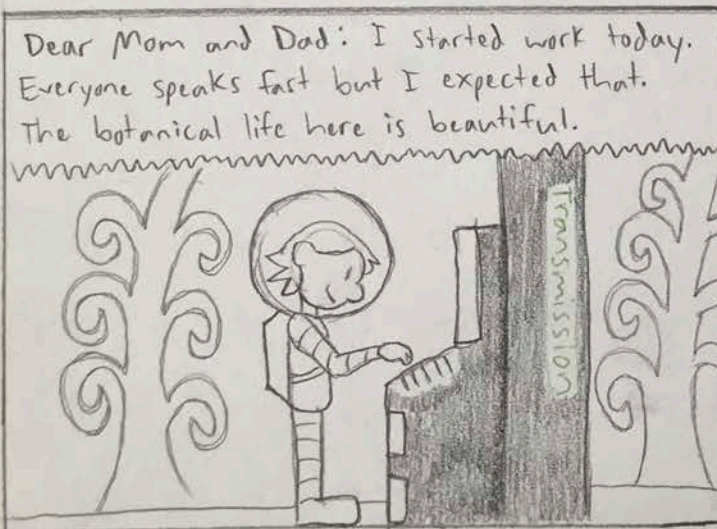 Dear Mom and Dad: I started work today.
Everyone speaks fast but I expected that.
The botanical life here is beautiful.
Transmission